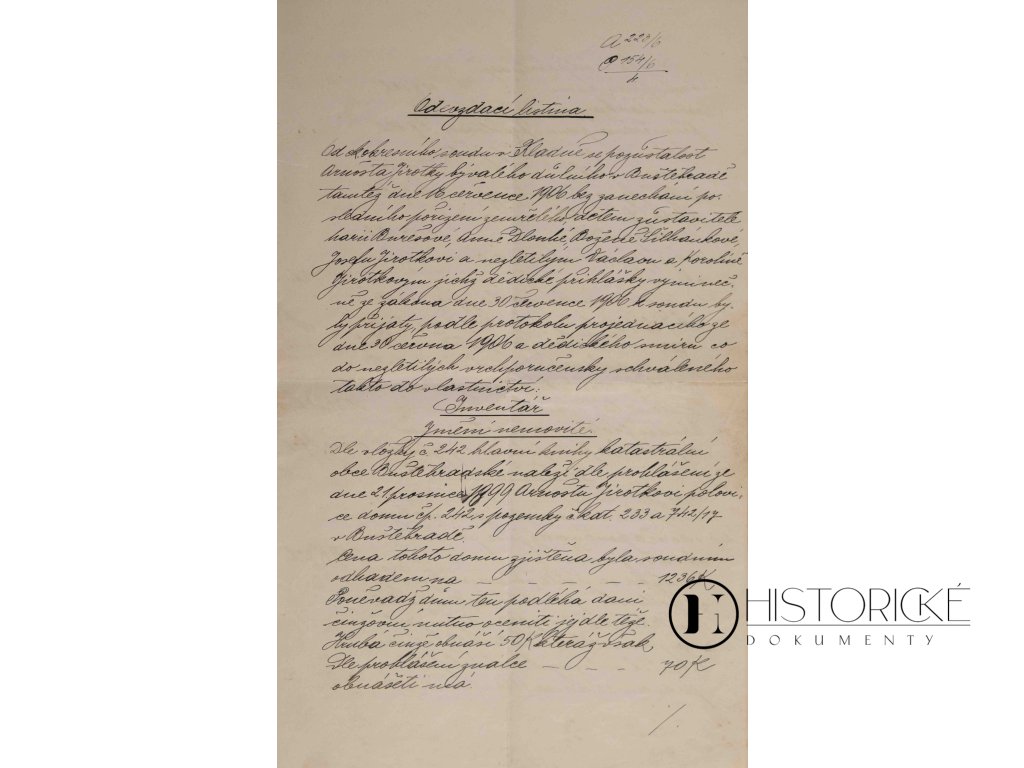 A 228/6
P 154/6
4
Odevzdací listina
Od c.k. okresního soudu v Kladně se pozůstalost
Arnošta Jirotky bývalého důlního v Buštěhradě
tamtéž dne 16 července 1906 bez zanechání po-
sledního pořízení zemřelého, dětem zůstavitele
Marii Burešové, Anně Dlouhé, Boženě Šilhánkové,
Josefu Jirotkovi a nezletilým Václavu a Karolíně
Jirotkovým jichž dědické přihlášky výmineč-
ně ze zákona dne 30 července 1906 k soudu by-
ly přijaty, podle protokolu projednacího ze
dne 30 června 1906 a dědického smíru co
do nezletilých vrchporučensky schváleného
takto do vlastnictví:
Inventář
Jmění nemovité.
Dle vložky č. 242 hlavní knihy katastrální
obce Buštěhradské náleží dle prohlášení ze
dne 21 prosince 1899 Arnoštu Jirotkovi polovi-
ce domu čp. 242 s pozemky č kat. 233 a 742/17
v Buštěhradě.
Cena tohoto domu zjištěna byla soudním
odhadem na _ _ _ _ _ 1236 K
Poněvadž dům ten podléhá dani
činžovní nutno oceniti jej dle téže.
Hrubá činže obnáší 50 K kteráž však
Dle prohlášení znalce _ _ _ _ 70 K
obnášeti má
./.
HISTORICKÉ
DOKUMENTY